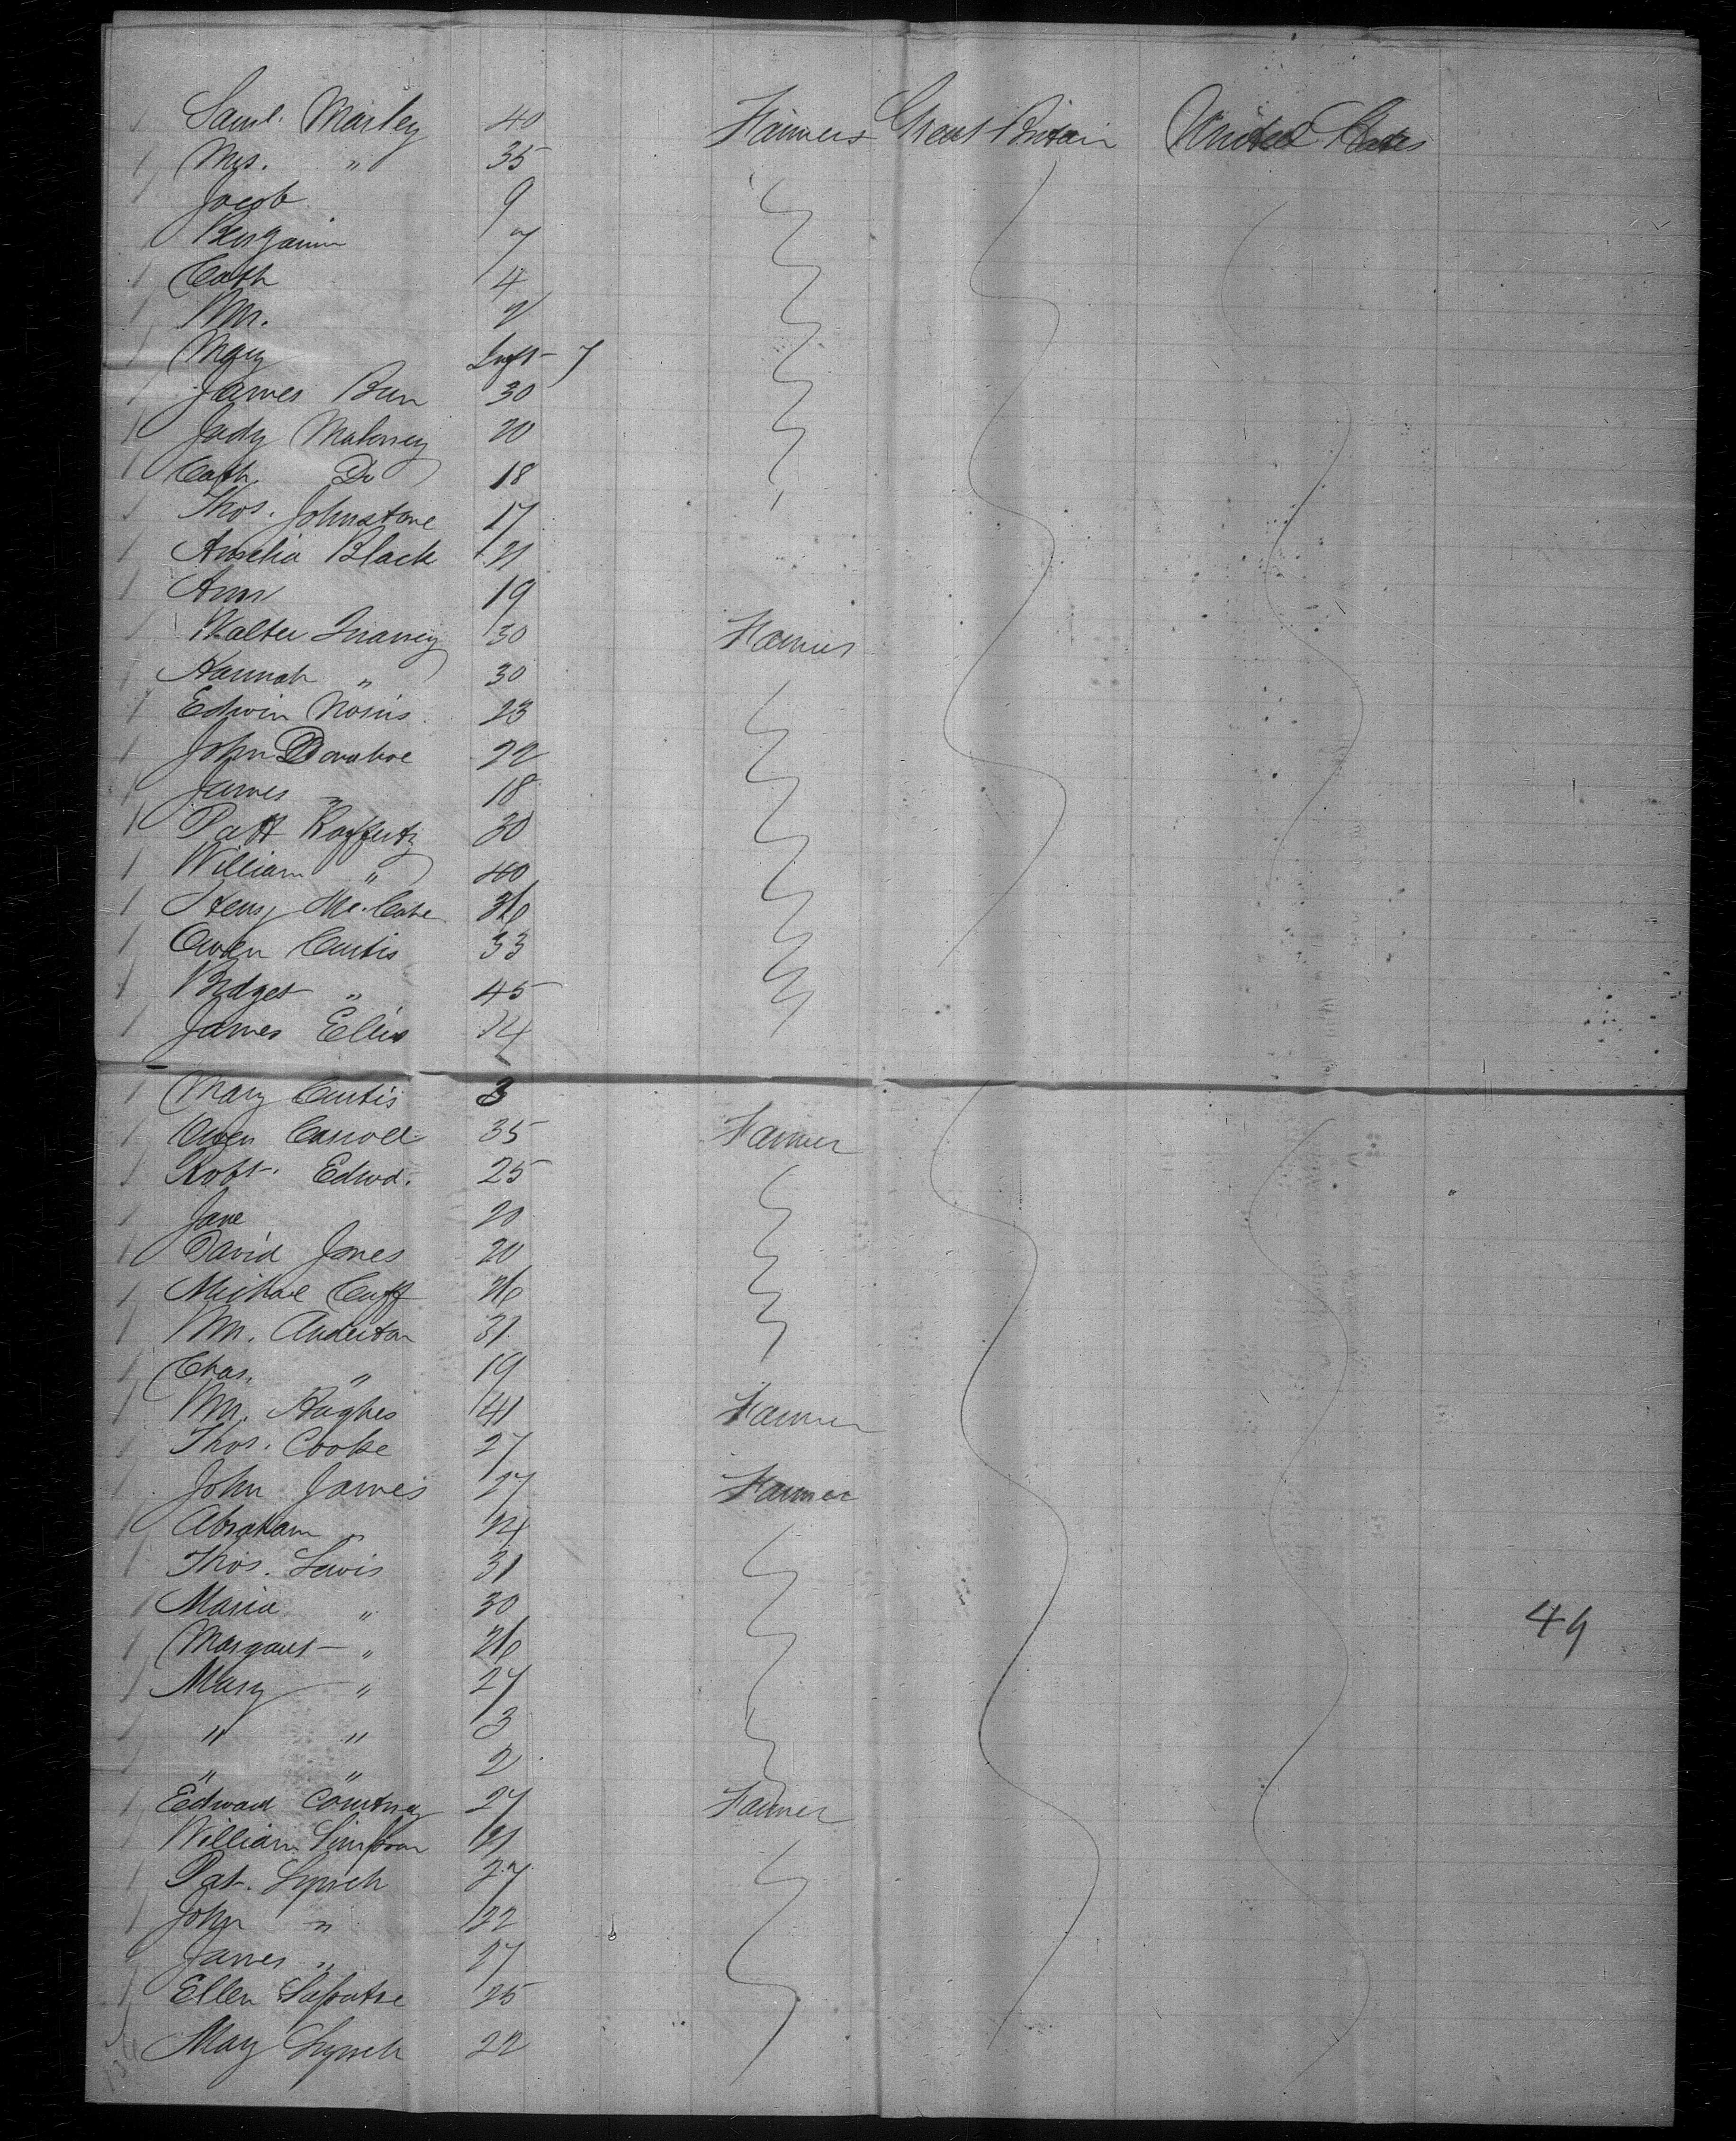 Saml. Marley 40 Farmers Great Britain United States
Mrs. " 35
Jacob 9
Benjamin 7
Cath 4
Wm. 2
Mary Inft 7
James Burn 30
Judy Maloney 20
Cath. Do 18
Thos. Johnstone 17
Amelia Black 21
Ann 19
Walter 30 Farmer
Hannah " 30
Edwin Norris 23
John Donahoe 22
James " 18
Patt Raffertz 30
William " 40
Henry Mc.Cabe 26
Owen Curtis 33
Bridget " 45
James Ellis 14
Mary Curtis 3
Owen Carroll 35 Farmer
Robt. Edwd. 25
Jane 20
David Jones 20
Michael Cuff 26
Wm. Anderton 31
Chas. " 19
Wm. Hughes 41 Farmer
Thos. Cooke 27
John James 27 Farmer
Abraham " 24
Thos. Lewis 31
Maria " 30
Margaret " 26
Mary " 27
" " 3
" " 2
Edward Courtney 27 Farmer
William Simpson 21
Pat. Lynch 27
John " 22
James " 27
Ellen 25
May Lynch 22
49